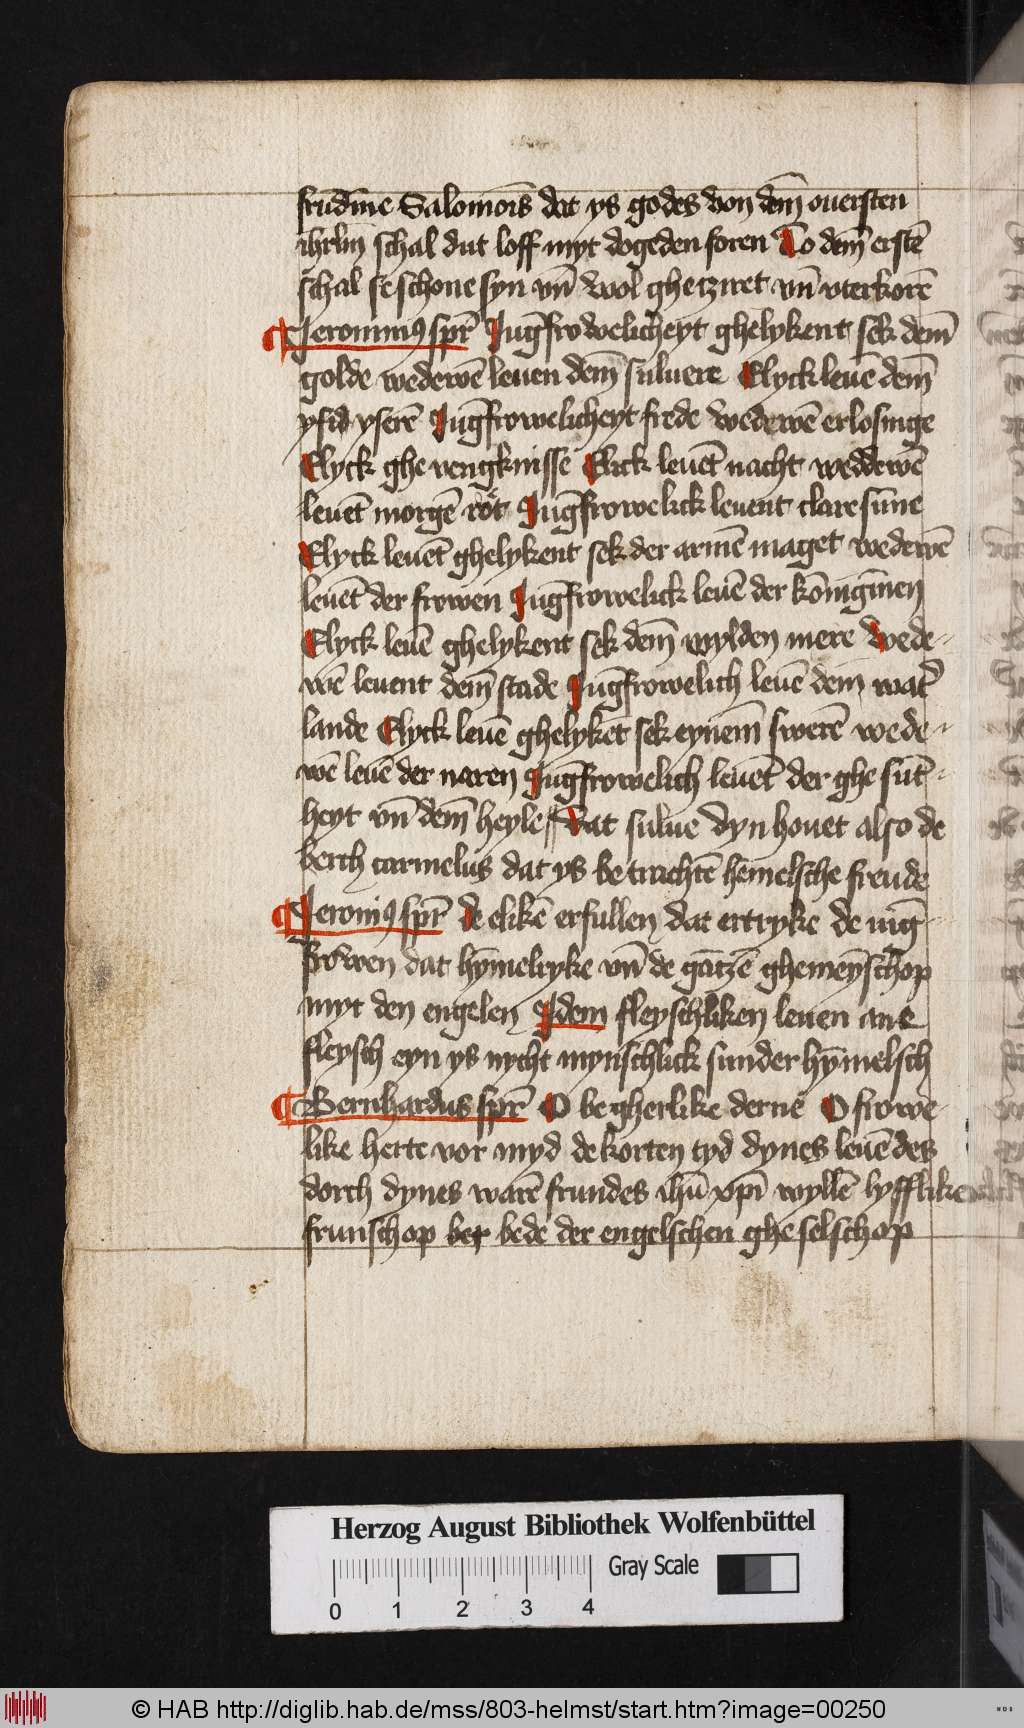 frūdīne Salomōis dat ys godes von dem̄ ouersten
ihrlm̄ schal dut loff myt dogeden foren To dem̄ erstē
schal se schone syn vn̄ wol ghetziret vn̄ vterkorē
Jeronimꝰ spr̄ Jūgfrowelicheyt ghelykent sek dem̄
golde wedewē leuen dem̄ suluere Elyck leuē dem̄
yserē Jūgfrowelicheyt frede wedewē erlosinge
Elyck ghevengknisse Elick leuēt nacht weddewē
leuēt morgē rot Jūgfrowelick leuent clare sūne
Elyck leuēt ghelykent sek der armē maget wedewē
leuēt der frowen Jūgfrowelick leuē der kōnigīnen
Elyck leuē ghelykent sek dem̄ wylden mere wede-
wē leuent dem̄ stade Jūgfrowelich leuē dem̄ wat̄
lande Elyck leuē ghelykēt sek eynem̄ swerē wede-
wē leuē der naren Jūgfrowelich leuēt der ghesūt-
heyt vn̄ dem̄ heyle Dat sulue dyn houet also de
berch carmelus dat ys betrachtē hēmelsche freude
Jeronīꝰ spr̄ de elikē erfullen dat ertryke de iūg-
frowen dat hȳmelryke vn̄ de gātzē ghemeȳschop
myt den engelen Jdem fleyschliken leuen ane
fleysch eyn ys nycht mynschlick sunder hȳmelsch
Bernhardus spr̄ O begherlike derne O frowe-
like herte vor myd de korten tyd dynes leuē des
dorch dynes warē frundes ihū xp̄i wyllē lyfflike
frunschop bede der engelschen gheselschop
Herzog August Bibliothek Wolfenbüttel
Gray Scale
0 1 2 3 4
© HAB http://diglib.hab.de/mss/803-helmst/start.htm?image=00250